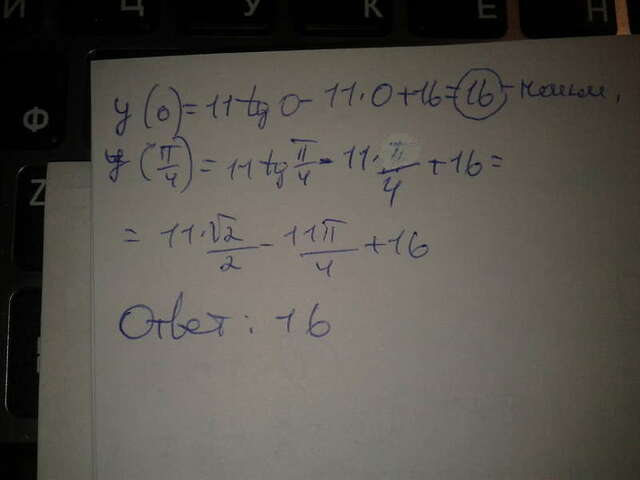 Й Ц У К Е Н
y(0) = 11 tg 0 - 11·0 + 16 = 16 - наим.
y(π/4) = 11 tg π/4 - 11·π/4 + 16 =
= 11·√2/2 - 11π/4 + 16
Ответ: 16
Ф
Z